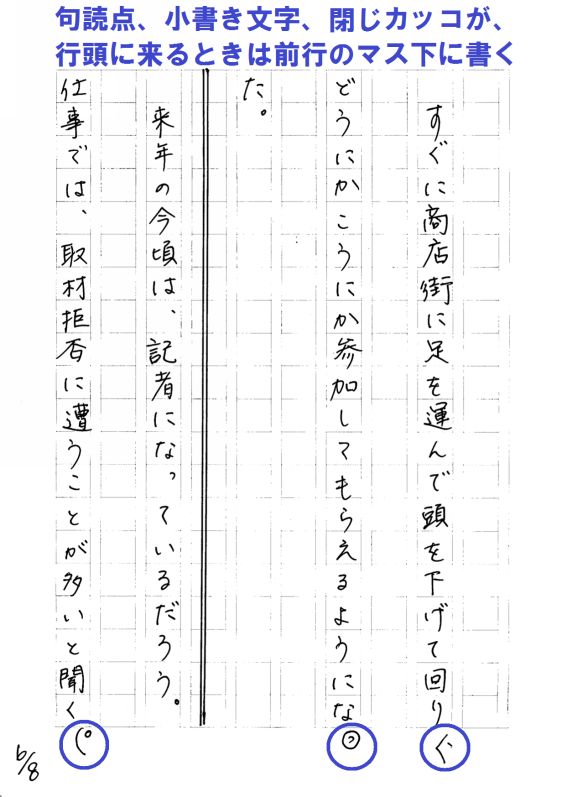 句読点、小書き文字、閉じカッコが、
行頭に来るときは前行のマス下に書く
すぐに商店街に足を運んで頭を下げて回り、
どうにかこうにか参加してもらえるようになっ
た。
来年の今頃は、記者になっているだろう。
仕事では、取材拒否に遭うことが多いと聞く。
6/8